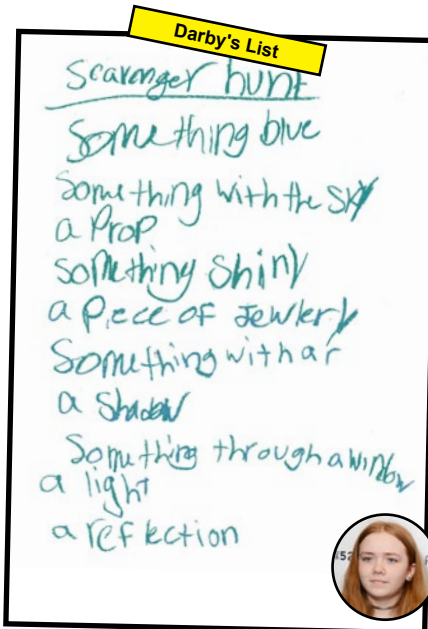 Darby's List
Scavenger hunt
Something blue
Something with the SKY
a Prop
something shiny
a Piece of Jewlery
Something with a r
a Shadow
Something through a window
a light
a reflection